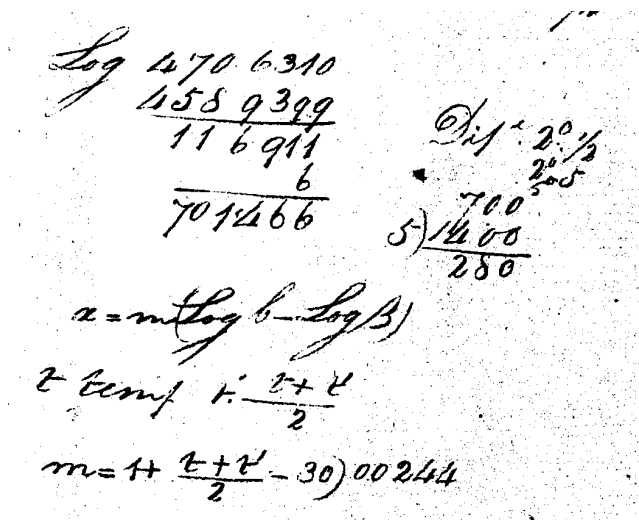 Log 470 6310
458 9399
116911
6
701466
Dif. 2°. 1/2
2°
5
700
5)1400
280
x = m(Log b - Log B)
t temp t' t+t'/2
m = 1+ t+t'/2 - 30)00244